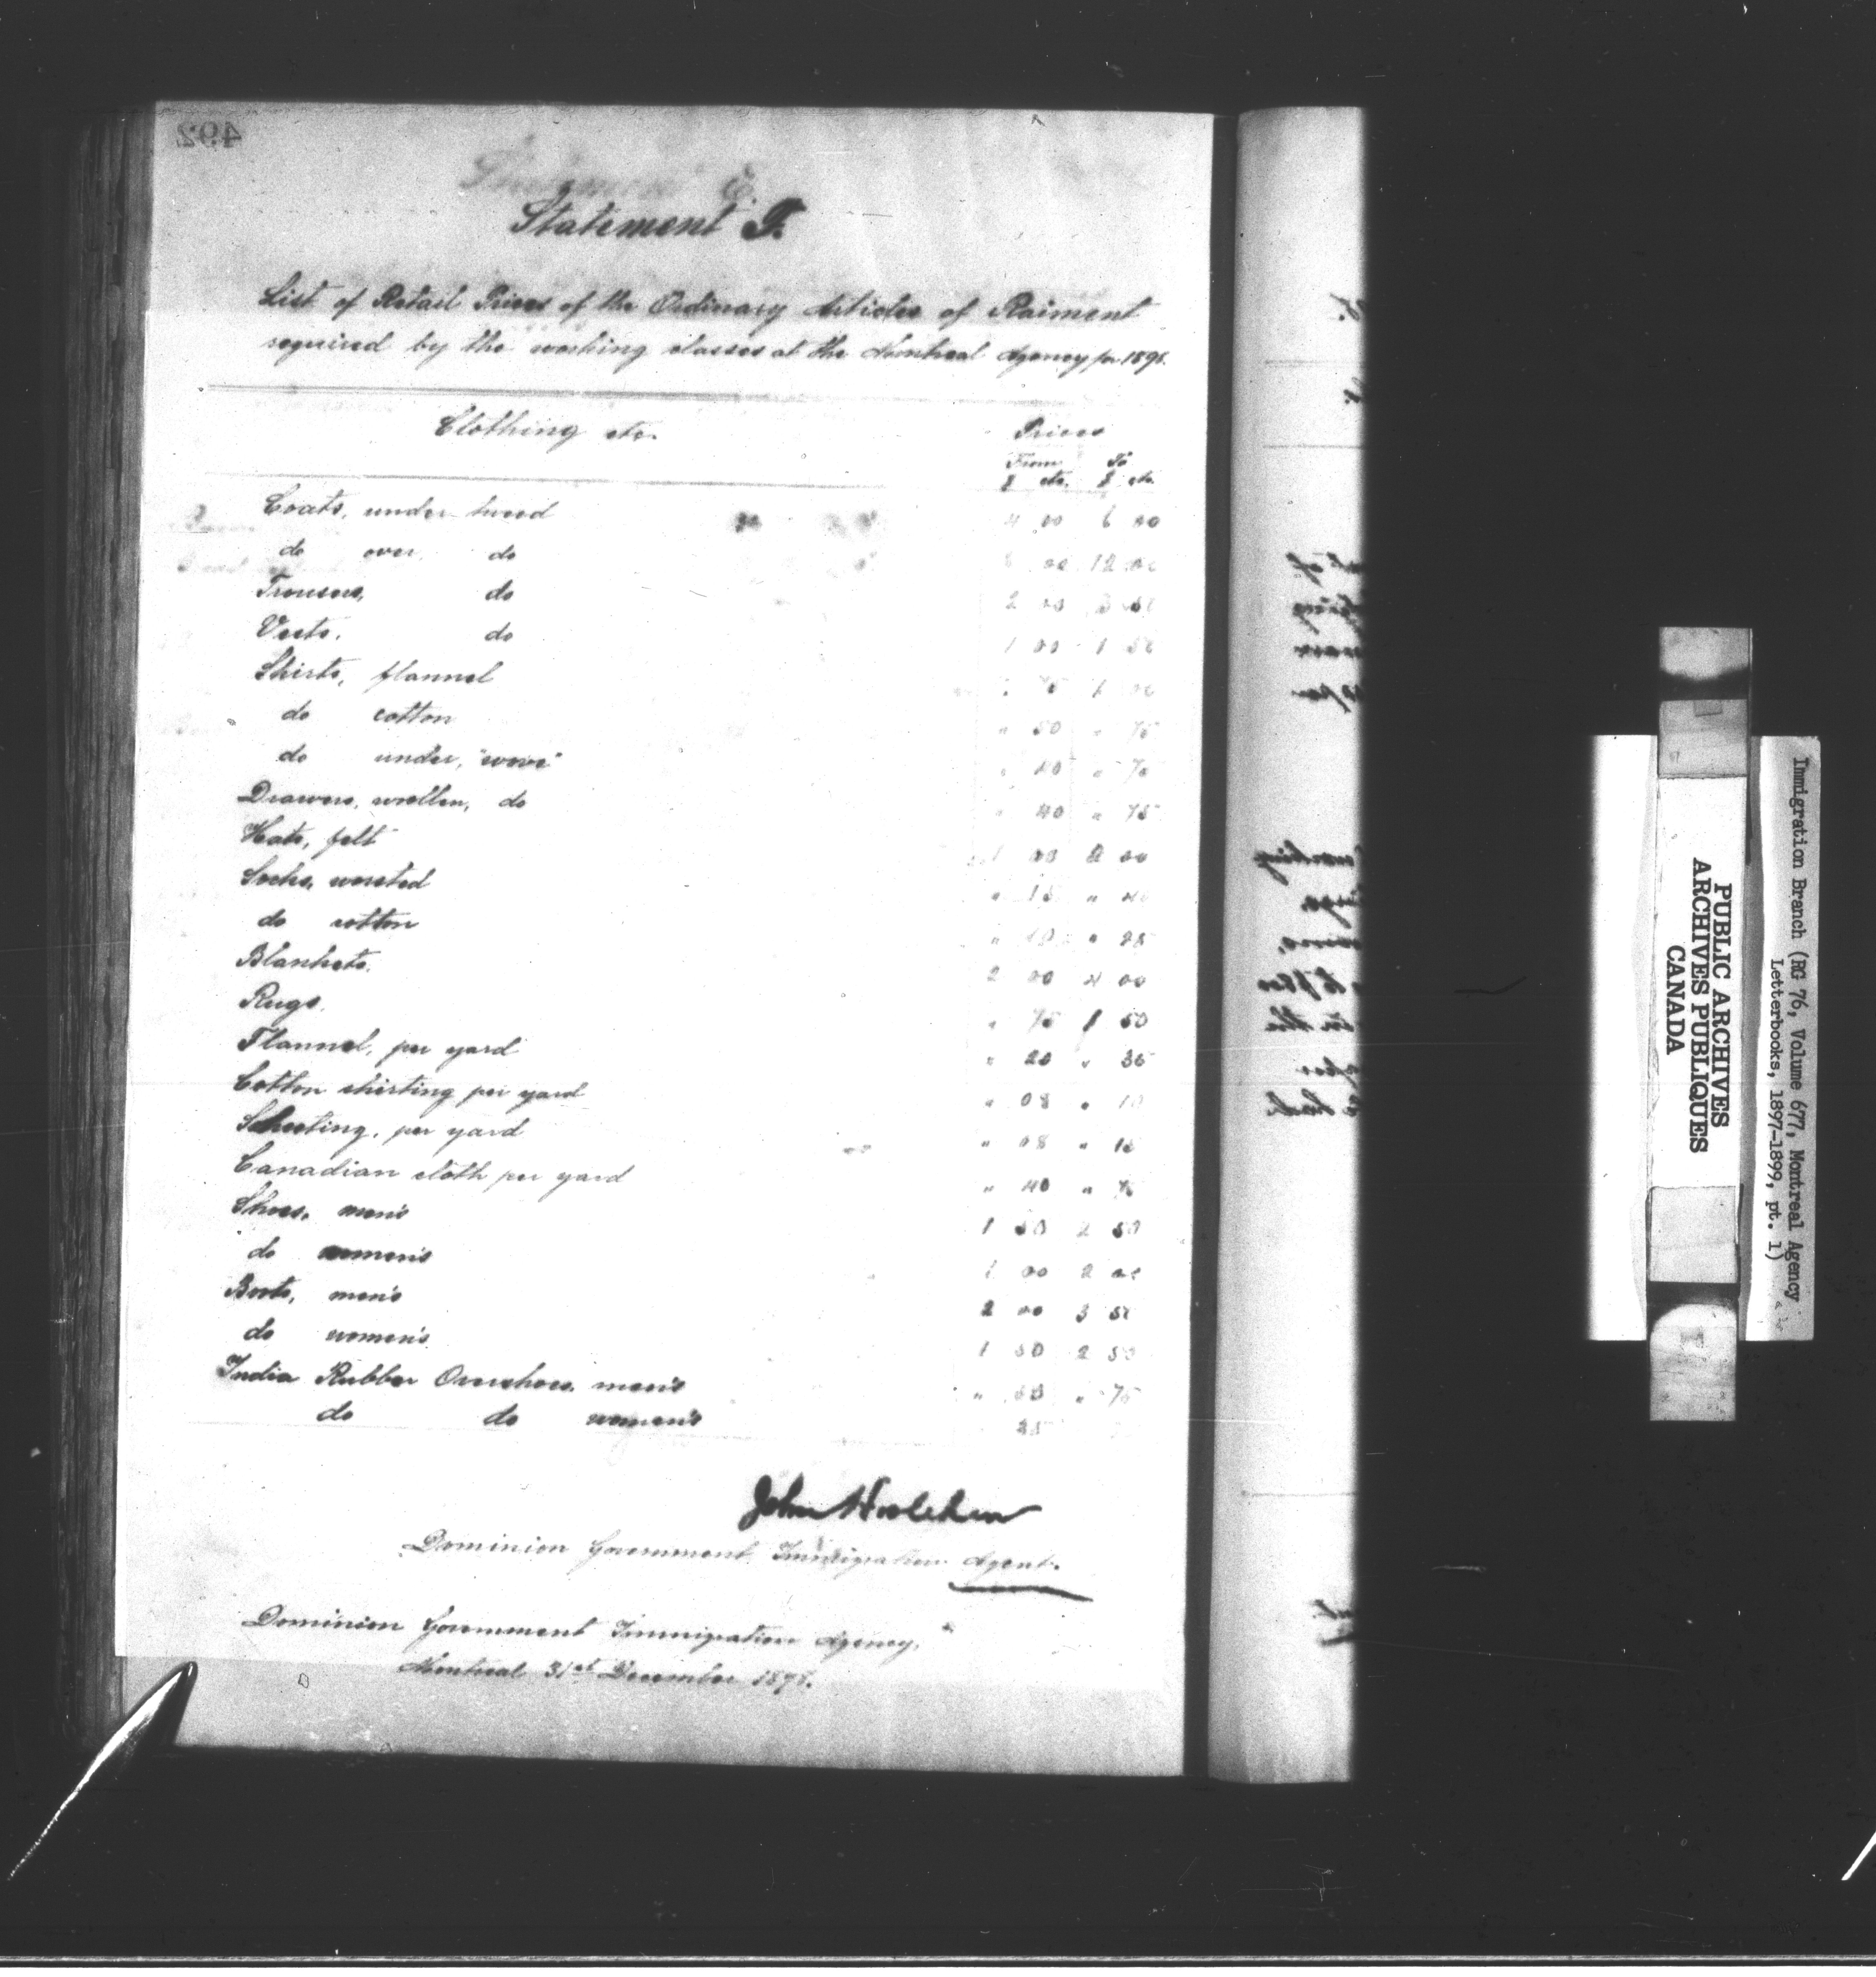 492
Statement E.
Statement F.
List of Retail Prices of the Ordinary Articles of Raiment
required by the working classes at the Montreal Agency for 1898.
Clothing etc. Prices
From To
$ cts. $ cts.
Coats, under tweed 4 00 6 00
do over do 00 12 00
Trousers, do 2 00 3 50
Vests, do 1 00 1 50
Shirts, flannel " 75 1 00
do cotton " 50 " 75
do under, "wove" " 40 " 75
Drawers, wollen, do " 40 " 75
Hats, felt 1 00 2 00
Socks, worsted " 15 " 40
do cotton " 10 " 25
Blankets. 2 00 4 00
Rugs. " 75 1 50
Flannel, per yard " 20 " 35
Cotton shirting per yard " 08 " 10
Sheeting, per yard " 08 "
Canadian cloth per yard " 40 " 75
Shoes, men's 1 50 2 50
do women's 1 00 2 00
Boots, men's 2 00 3 50
do women's 1 50 2 50
India Rubber Overshoes, men's " " 75
do do women's
John Hoolahan
Dominion Government Immigration Agent.
Dominion Government Immigration Agency,
Montreal 31st December 1898.
Immigration Branch (RG 76, Volume 677, Montreal Agency
Letterbooks, 1897-1899, pt. 1)
PUBLIC ARCHIVES
ARCHIVES PUBLIQUES
CANADA